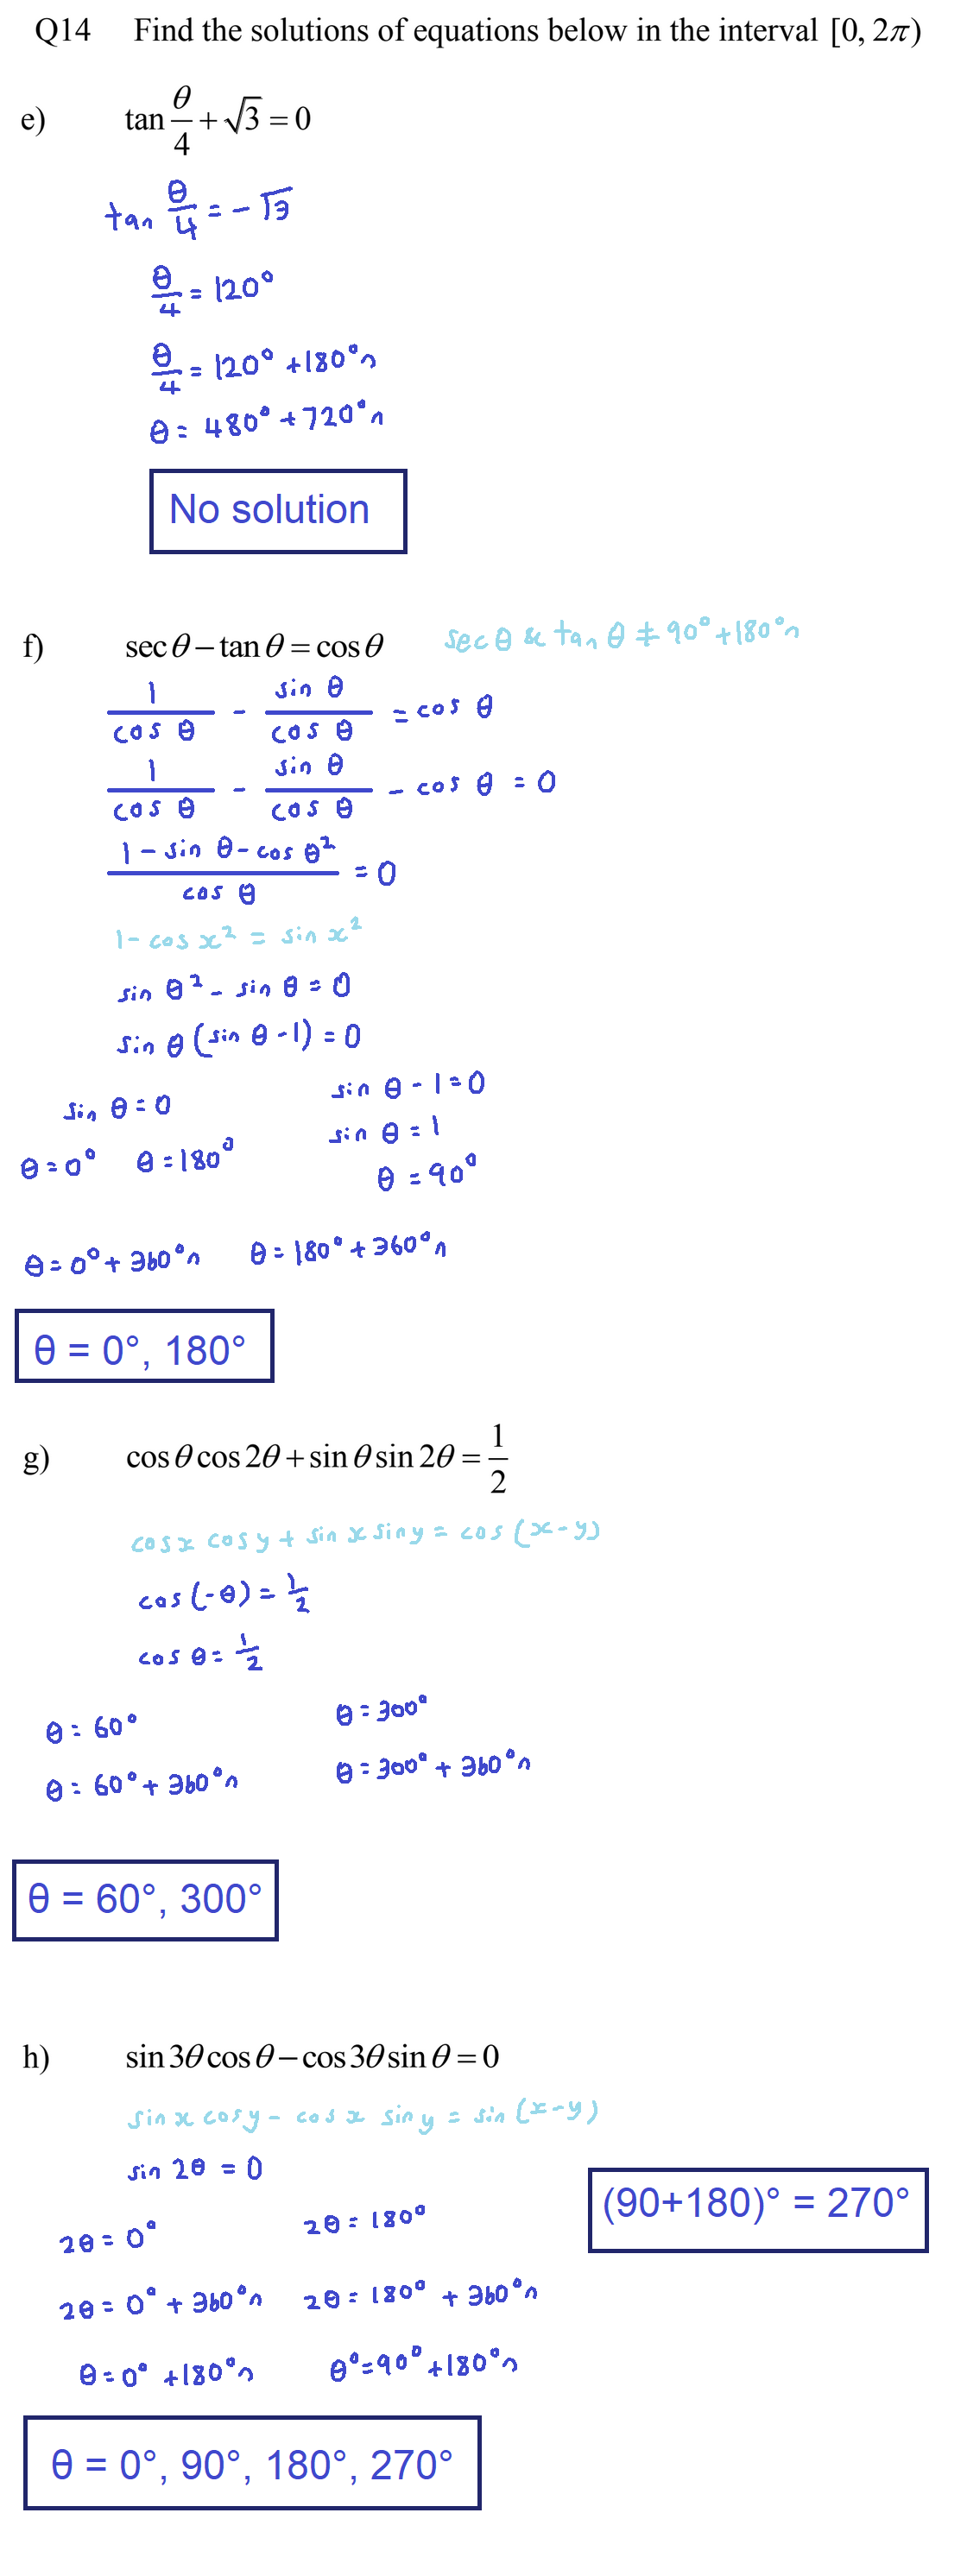 Q14 Find the solutions of equations below in the interval [0, 2π)
e) tan θ/4 + √3 = 0
tan θ/4 = - √3
θ/4 = 120°
θ/4 = 120° + 180°n
θ = 480° + 720°n
No solution
f) sec θ − tan θ = cos θ sec θ & tan θ ≠ 90° + 180°n
1/cos θ - sin θ/cos θ = cos θ
1/cos θ - sin θ/cos θ - cos θ = 0
(1 - sin θ - cos θ²)/cos θ = 0
1 - cos x² = sin x²
sin θ² - sin θ = 0
sin θ (sin θ - 1) = 0
sin θ = 0 sin θ - 1 = 0
sin θ = 1
θ = 0° θ = 180° θ = 90°
θ = 0° + 360°n θ = 180° + 360°n
θ = 0°, 180°
g) cos θ cos 2θ + sin θ sin 2θ = 1/2
cos x cos y + sin x sin y = cos (x - y)
cos (-θ) = 1/2
cos θ = 1/2
θ = 60° θ = 300°
θ = 60° + 360°n θ = 300° + 360°n
θ = 60°, 300°
h) sin 3θ cos θ − cos 3θ sin θ = 0
sin x cos y - cos x sin y = sin (x - y)
sin 2θ = 0
(90+180)° = 270°
2θ = 0° 2θ = 180°
2θ = 0° + 360°n 2θ = 180° + 360°n
θ = 0° + 180°n θ° = 90° + 180°n
θ = 0°, 90°, 180°, 270°